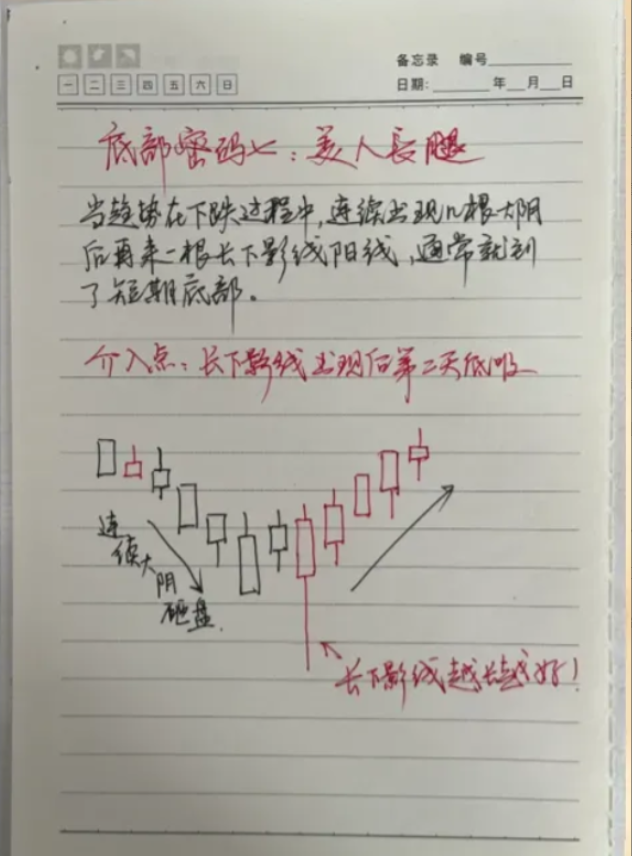 备忘录 编号
一 二 三 四 五 六 日
日期: 年 月 日
底部密码七:美人長腿
当趋势在下跌过程中,连续出现几根大阴
后再来一根长下影线阳线,通常就到
了短期底部。
介入点:长下影线出现后第二天低吸
连续大阴砸盘
长下影线越长越好!